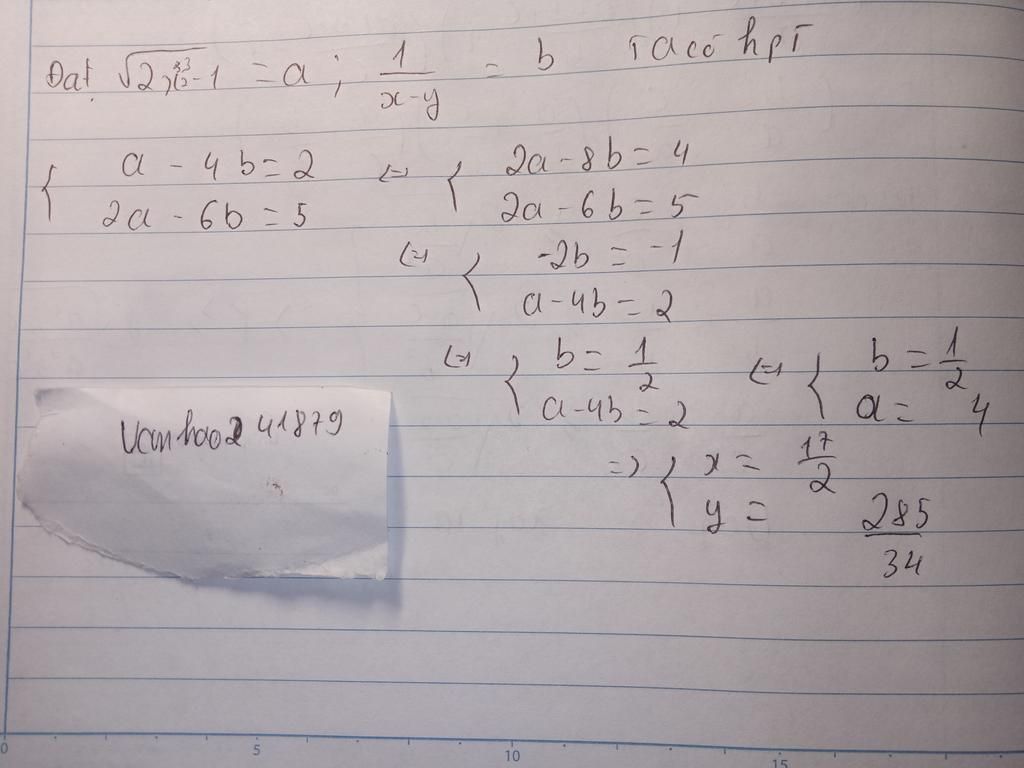 Đặt √2x-1 = a ; 1/(x-y) = b Ta có hpt
{ a - 4b = 2 (=) { 2a - 8b = 4
2a - 6b = 5 2a - 6b = 5
(=) { -2b = -1
a - 4b = 2
(=) { b = 1/2 (=) { b = 1/2
a - 4b = 2 a = 4
=> { x = 17/2
y = 285/34
Vanhao241879
0 5 10 15